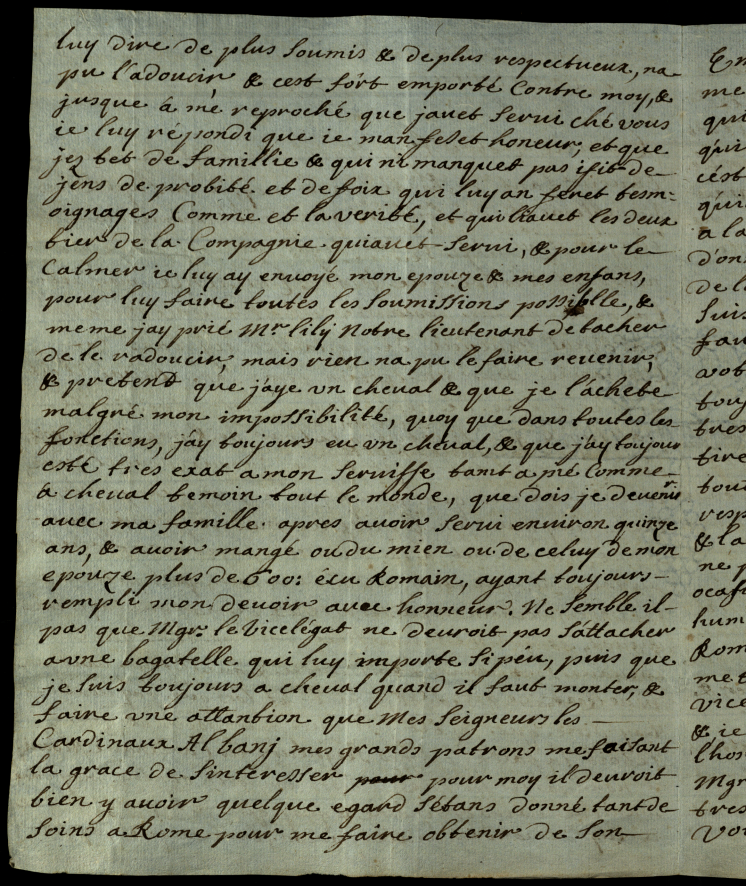 luy dire de plus soumis & de plus respectueux, na
pu l'adoucir & cest fort emporté Contre moy, &
jusque á me reproché que javet servi ché vous
ie luy répondi que ie man feset honeur, et que
jez tet de famillie & qui ni manquet pas isit de
jens de probité et de foix qui luy an feret tesm=
oignages Comme et la verité, et quil iavet les deux
tier de la Compagnie quiavet servi, & pour le
Calmer ie luy ay envoyé mon epouze & mes enfans,
pour luy faire toutes les soumissions possiblle, &
meme jay prié Mr. lilij Notre lieutenant de tacher
de le radoucir, mais rien na pu le faire revenir,
& pretend que j'aye vn cheval & que je l'áchete
malgré mon impossibilité, quoy que dans toutes les
fonctions, j'ay toujours eu vn cheval, & que j'ay toujour
esté tres exat a mon servisse tant a pié Comme
a cheval temoin tout le monde, que dois je devenir
avec ma famille apres avoir servi environ quinze
ans, & avoir mangé ou du mien ou de celuy de mon
epouze plus de 600: écu Romain, ayant toujours
rempli mon devoir avec honneur. Ne semble il
pas que Mgr. le Vicelégat ne devroit pas s'áttacher
a vne bagatelle qui luy importe si péu, puis que
je suis toujours a cheval quand il faut monter, &
faire vne attantion que Mes seigneurs les
Cardinaux Albanj mes grands patrons me faisant
la grace de s'interesser pour pour moy il devroit
bien y avoir quelque egard sétans donné tant de
soins a Rome pour me faire obtenir de son
Em
me
qui
qui
cést
qui
a la
d'on
de l
suis
fau
vot
touj
tres
tire
tou
resp
& la
ne p
ocas
hum
Rom
me t
vice
& ie
l'hon
Mgr
tres
Vo